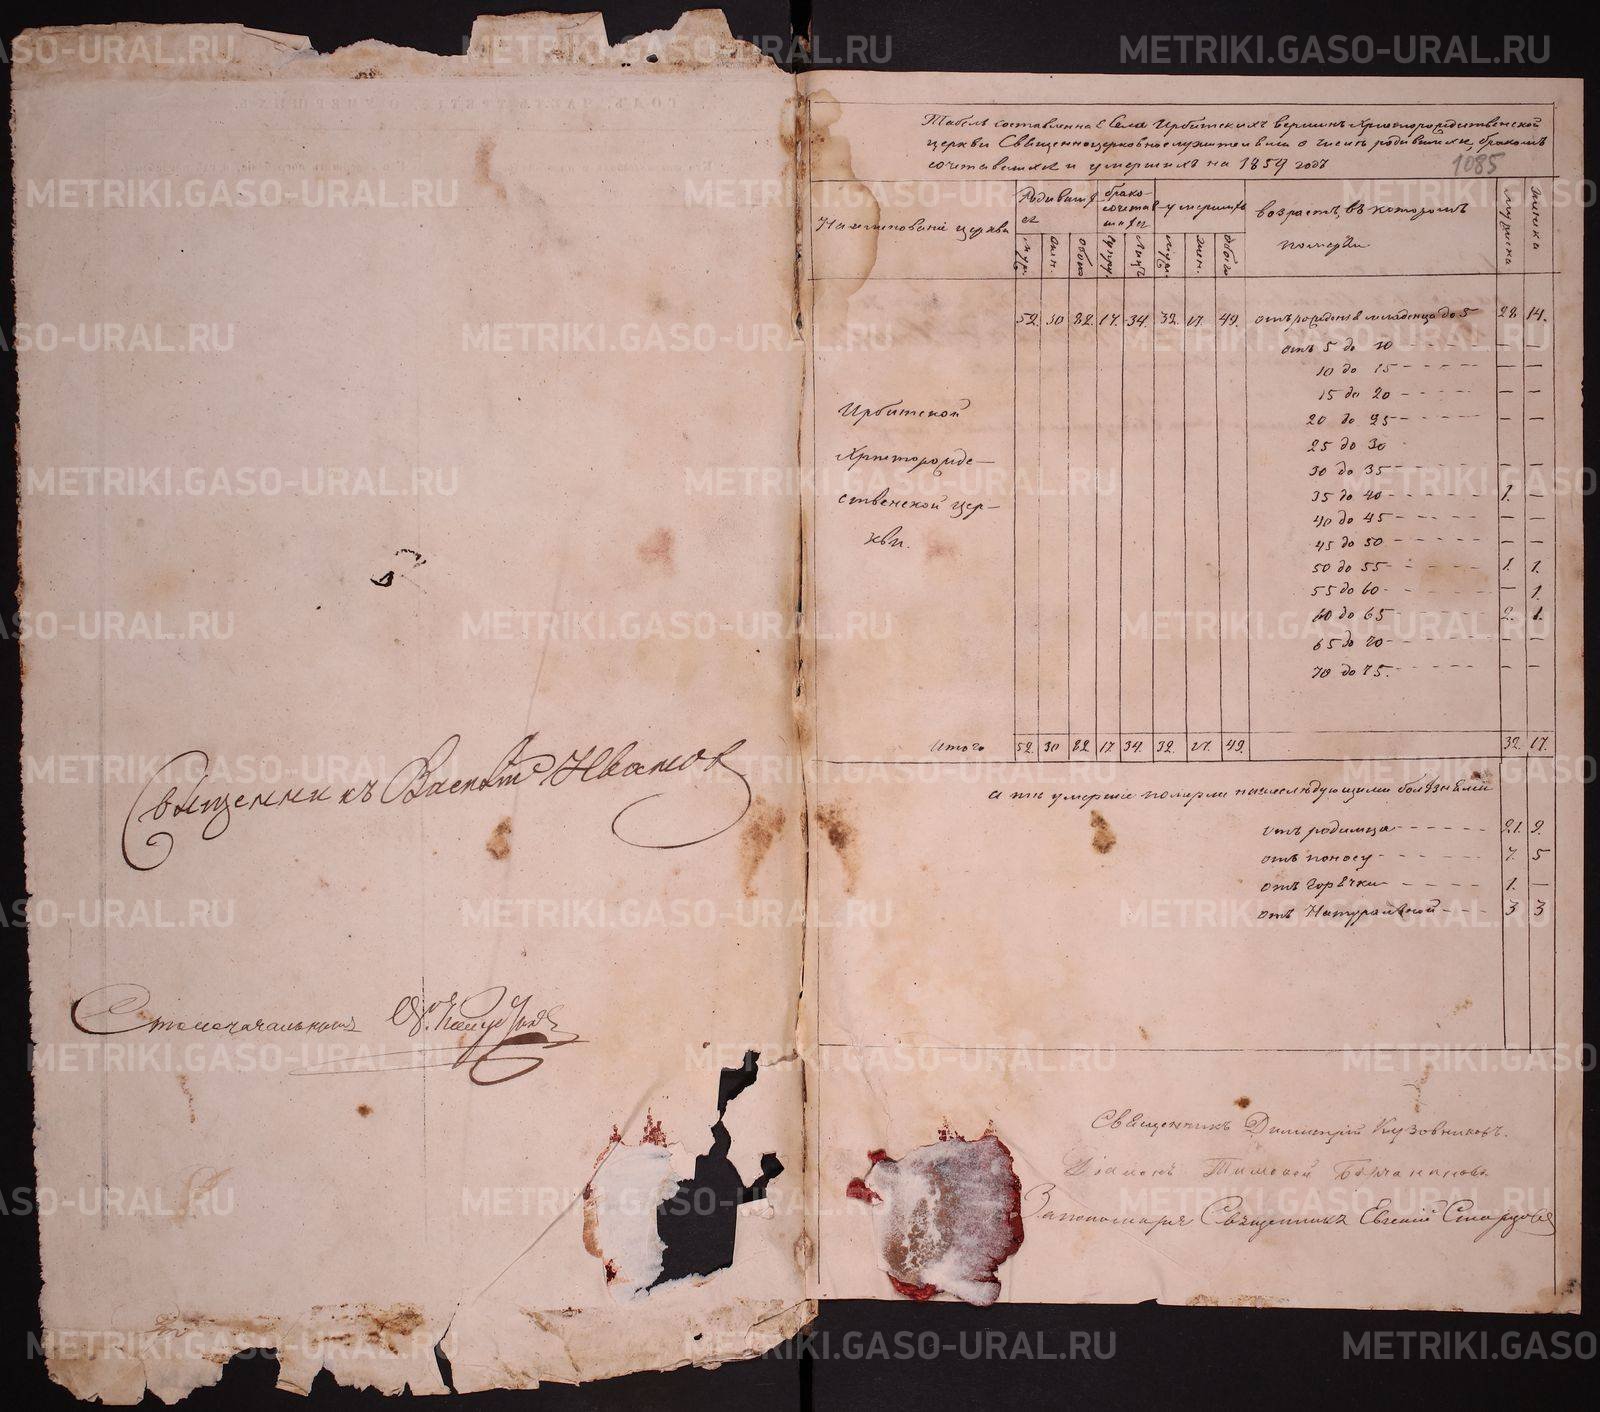 Священникъ Иванов
Столоначальникъ
Табель составленная Села Ирбитскихъ вершинъ Христорождественской
церкви Священноцерковнослужителями о числе родившихся, бракомъ
сочетавшихся и умершихъ на 1859 годъ
1085
Наименование церкви
Родивших ся
брако- сочетав шихся
умершихъ
возрастъ, въ которомъ
померли
мужеска
женска
муж. жен. обоего супру. лицъ муж. жен. обоего
52. 30 82. 17. 34. 32. 17. 49. отъ рождения младенца до 5 28. 14.
отъ 5 до 10 — —
10 до 15 — —
15 до 20 — —
20 до 25 — —
25 до 30
30 до 35 — —
35 до 40 1. —
40 до 45 — —
45 до 50 — —
50 до 55 1. 1.
55 до 60 — 1.
60 до 65 2. 1.
65 до 70 — —
70 до 75. — —
Ирбитской
Христорожде-
ственской цер-
кви.
Итого 52. 30 82 17. 34. 32. 17. 49. 32. 17.
а тѣ умершие померли нижеследующими болезнями
отъ родимца 21. 9.
отъ поносу 7. 5
отъ горячки 1. —
отъ Натуральной 3 3
Священникъ Димитрій Кузовниковъ.
Діаконъ Тимофей
За пономаря Священникъ Евгений Старцовъ
METRIKI.GASO-URAL.RU